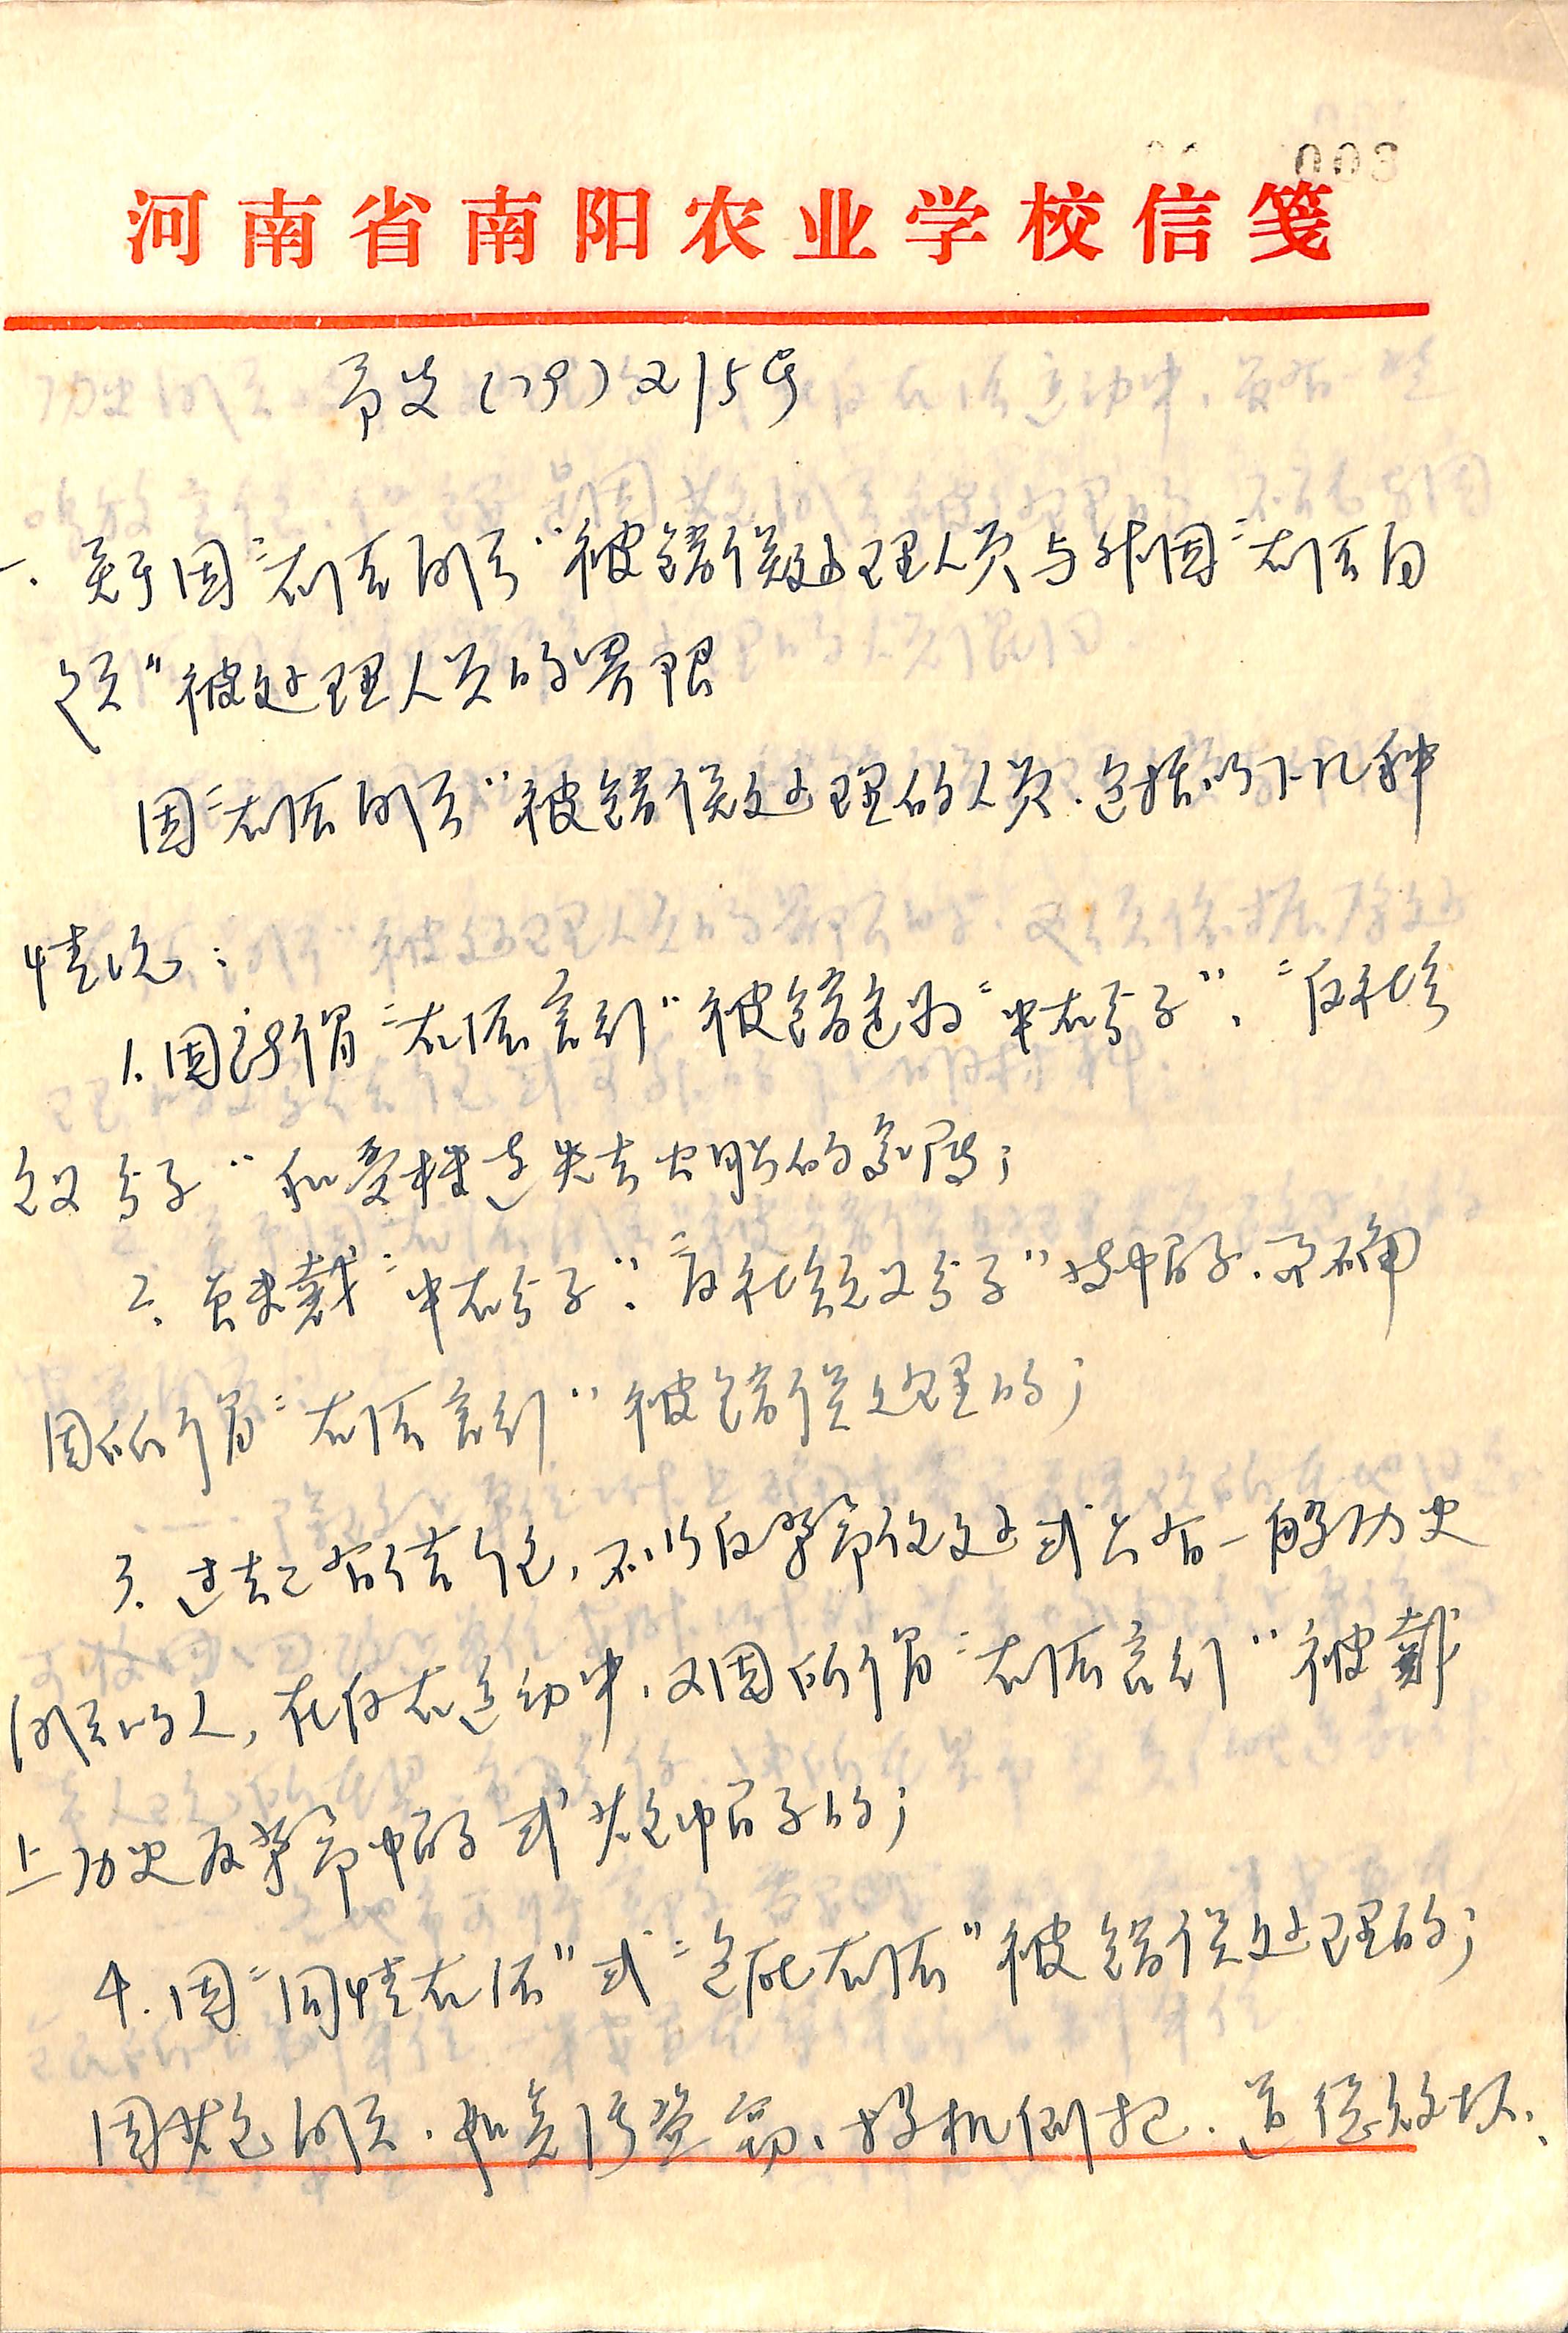 河南省南阳农业学校信笺
发(79)215号
一.关于因“右派问题”被错误处理人员与非因“右派问
题”被处理人员的界限
因“右派问题”被错误处理的人员.包括以下几种
情况:
1.因所谓“右派言论”被错定为“中右分子”、“反社会
主义分子”和受株连失去公职的家属;
2.虽未戴“中右分子”.“反社会主义分子”帽子.而确
因所谓“右派言论”被错误处理的;
3.过去已有结论,不以反革命论处或只有一般历史
问题的人,在反右运动中.又因所谓“右派言论”被戴
上历史反革命帽子或其它帽子的;
4.因“同情右派”或“包庇右派”被错误处理的;
因其它问题.如贪污盗窃、投机倒把.道德败坏、